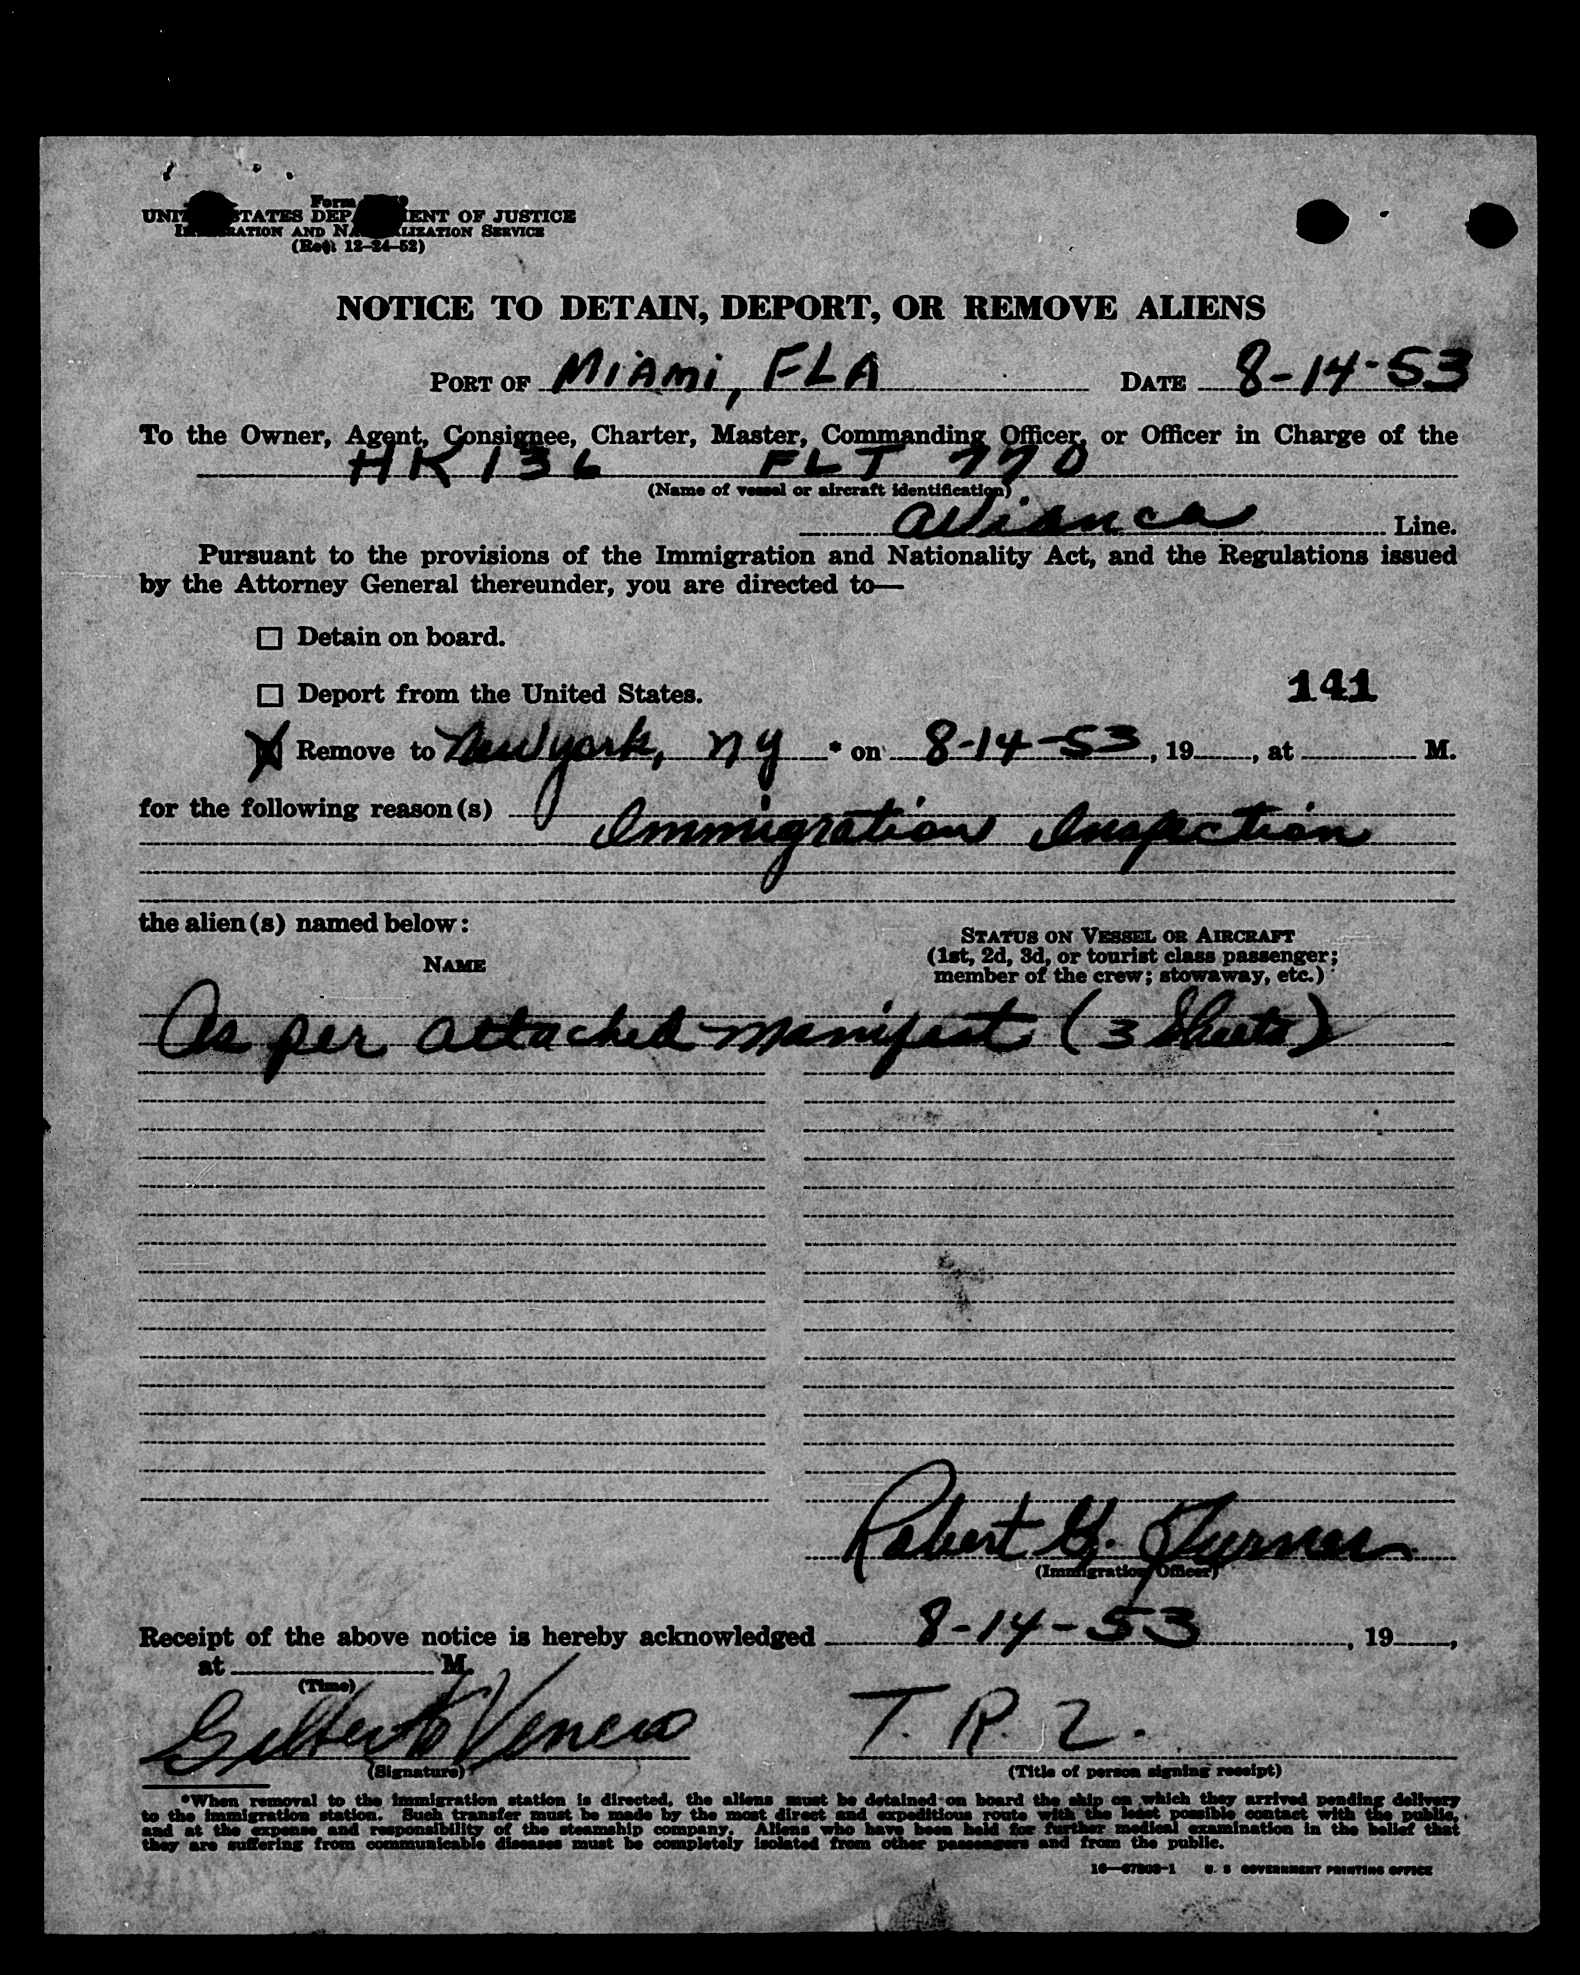 Form
UNITED STATES DEPARTMENT OF JUSTICE
IMMIGRATION AND NATURALIZATION SERVICE
12-24-52)
NOTICE TO DETAIN, DEPORT, OR REMOVE ALIENS
PORT OF Miami, FLA DATE 8-14-53
To the Owner, Agent, Consignee, Charter, Master, Commanding Officer, or Officer in Charge of the
HK 136 FLT 770
(Name of vessel or aircraft identification)
Avianca Line.
Pursuant to the provisions of the Immigration and Nationality Act, and the Regulations issued
by the Attorney General thereunder, you are directed to—
☐ Detain on board.
☐ Deport from the United States.
141
☒ Remove to New York, NY * on 8-14-53, 19, at M.
for the following reason(s)
Immigration Inspection
the alien(s) named below:
NAME
STATUS ON VESSEL OR AIRCRAFT
(1st, 2d, 3d, or tourist class passenger;
member of the crew; stowaway, etc.)
As per attached manifest (3 Sheets)
Robert G. Turner
(Immigration Officer)
Receipt of the above notice is hereby acknowledged 8-14-53, 19,
at M.
(Time)
Gilberto
(Signature)
T. R.
(Title of person signing receipt)
*When removal to the immigration station is directed, the aliens must be detained on board the ship on which they arrived pending delivery
to the immigration station. Such transfer must be made by the most direct and expeditious route with the least possible contact with the public,
and at the expense and responsibility of the steamship company. Aliens who have been held for further medical examination in the belief that
they are suffering from communicable diseases must be completely isolated from other passengers and from the public.
U. S. GOVERNMENT PRINTING OFFICE